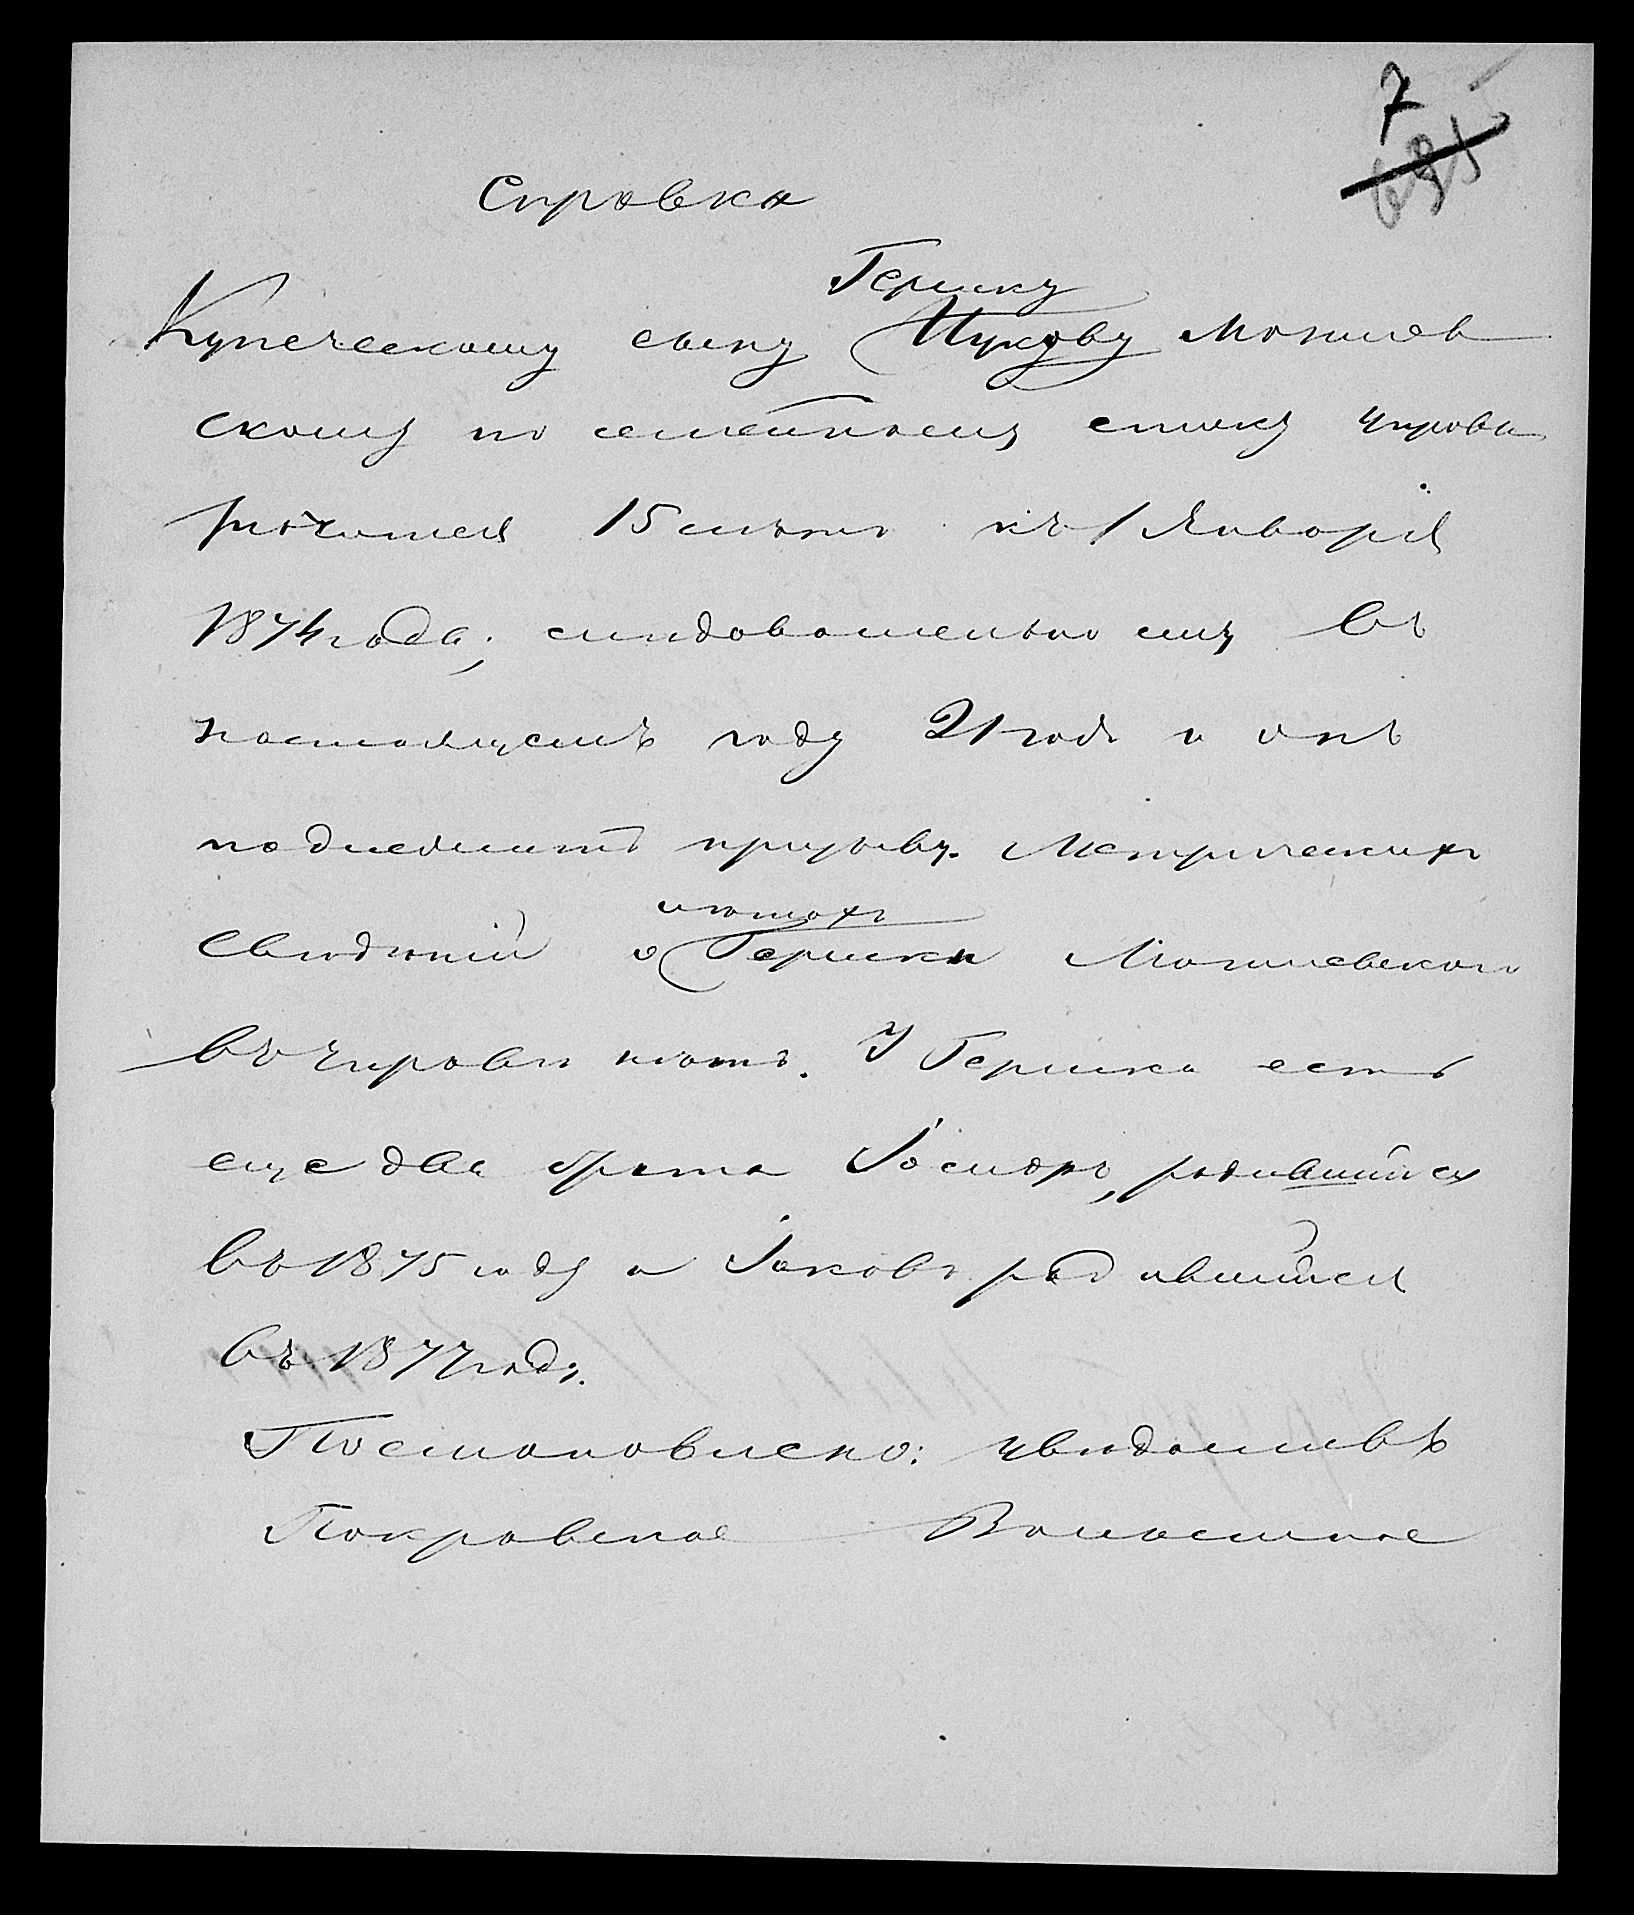 7
695
Справка
Гершку
Купеческому сыну Ицкову Могилев
скому по семейному списку Управы
значится 15 лѣтъ къ 1 Января
1874 года; следовательно ему въ
настоящемъ году 21 годъ и онъ
подлежитъ призыву. Метрическихъ
о лѣтахъ
Свѣдѣній о Гершка Могилевского
въ Управѣ нѣтъ. У Гершка есть
еще два брата Іосифъ, родившійся
въ 1875 году и Іаковъ родившійся
въ 1877 году.
Постановлено: увѣдомивъ
Покровское Волостное